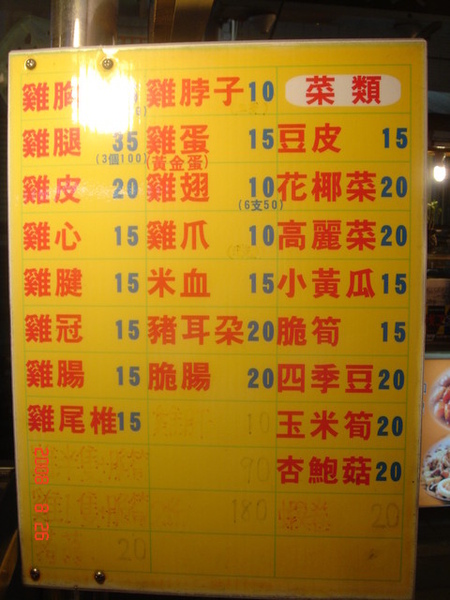 雞胸
雞腿 35
(3個100)
雞皮 20
雞心 15
雞腱 15
雞冠 15
雞腸 15
雞尾椎 15
20
雞脖子 10
雞蛋 15
(黃金蛋)
雞翅 10
(6支50)
雞爪 10
米血 15
豬耳朵 20
脆腸 20
10
90
180
菜類
豆皮 15
花椰菜 20
高麗菜 20
小黃瓜 15
脆筍 15
四季豆 20
玉米筍 20
杏鮑菇 20
20